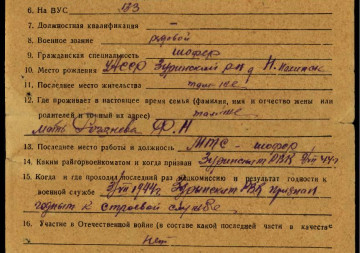 6. На ВУС 133
7. Должностная квалификация —
8. Военное звание рядовой
9. Гражданская специальность шофер
10. Место рождения УАССР Зуринский р-н д.
11. Последнее место жительства там же
12. Где проживает в настоящее время семья (фамилия, имя и отчество жены или
родителей и точный их адрес) там же
мать Ф. Н
13. Последнее место работы и должность МТС - шофер
14. Каким райгорвоенкоматом и когда призван Зуринским РВК 44 г
15. Когда и где проходил последний раз медкомиссию и результат годности к
военной службе 1944 г. Зуринским РВК признан
годным к строевой службе
16. Участие в Отечественной войне (в составе какой последней части в качестве
нет